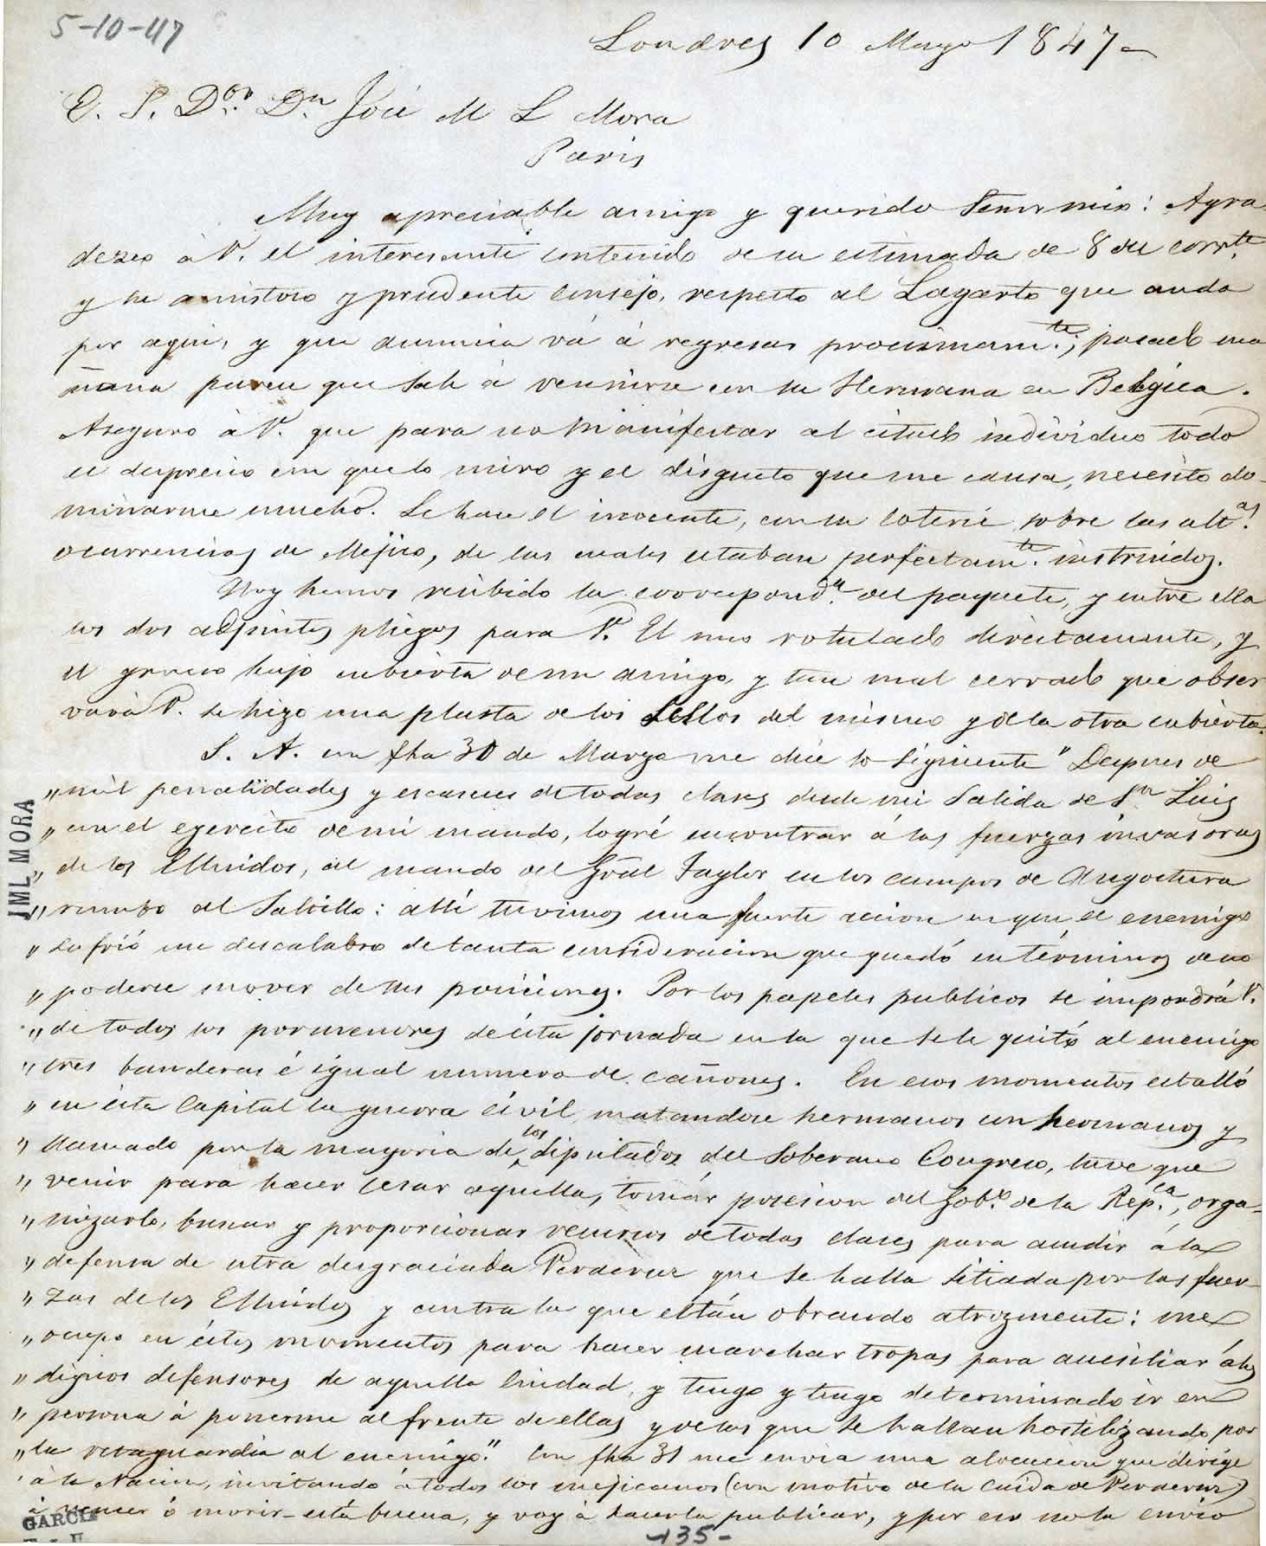 5-10-47
Londres 10 Mayo 1847-
E. S. Dor. Dn. José M L Mora
Paris
Muy apreciable amigo y querido Señor mio: Agra
dezco à V. el interesante contenido de su estimada de 8 del corrte.
y su amistoso y prudente consejo, respecto al Lagarto que anda
por aqui, y que anuncia vá á regresar procsimamte.; pasado ma
ñana parece que sale á reunirse con su Hermana en Belgica.
Aseguro à V. que para no manifestar al citado individuo todo
el desprecio con que lo miro y el disgusto que me causa, necesito do-
minarme mucho. Se hace el inocente, con su loterie sobre las alts.
ocurrencias de Mejico, de las cuales estaban perfectamte. instruidos.
Hoy hemos recibido la correspondª. del paquete, y entre ella
los dos adjuntos pliegos para V. El uno rotulado directamente, y
el grueso bajo cubierta de un amigo, y tan mal cerrado que obser
vará V. se hizo una plasta de los sellos del mismo y de la otra cubierta.
S. A. con fha 30 de Marzo me dice lo siguiente " Despues de
" mil penalidades y escaseces de todas clases desde mi salida de Sn Luis
" con el egercito de mi mando, logré encontrar á las fuerzas invasoras
" de los EUnidos, al mando del Gral Taylor en los campos de Angostura
" rumbo al Saltillo: allí tuvimos una fuerte accion en que el enemigo
" sufrió un descalabro de tanta consideracion que quedó en términos de no
" poderse mover de sus posiciones. Por los papeles publicos se impondrá V.
" de todos los pormenores de ésta jornada en la que se le quitó al enemigo
" tres banderas é igual numero de cañones. En esos momentos estalló
" en ésta Capital la guerra civil matandose hermanos con hermanos y
" llamado por la mayoria de los diputados del Soberano Congreso, tuve que
" venir para hacer cesar aquella, tomár posesion del Gobo. de la Repca., orga-
" nizarlo, buscar y proporcionar recursos de todas clases para acudir á la
" defensa de ntra desgraciada Veracruz que se halla sitiada por las fuer-
" zas de los EUnidos y contra la que están obrando atrozmente: me
" ocupo en éstos momentos para hacer marchar tropas para aucsiliar á los
" dignos defensores de aquella Ciudad, y tengo y tengo determinado ir en
" persona á ponerme al frente de ellas y de las que se hallan hostilizando por
" la retaguardia al enemigo." Con fha 31 me envia una alocucion que dirige
á la Nacion, invitando á todos los mejicanos (con motivo de la caida de Veracruz)
á vencer ó morir - está buena, y voy à hacerla publicar, y por eso no la envio
-135-
JML MORA
GARCIA